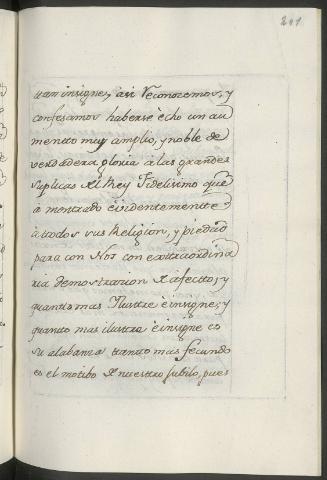 201
tam insigne, asi reconozemos, y
confesamos haberse echo un au
mentto muy amplio, y noble de
verdadera gloria à las grandes
suplicas del Rey Fidelisimo que
à montrado evidentemente
à ttodos sus Religion, y piedad
para con Nos con extraordina
ria demostracion de afecto; y
quantto mas Ilustre è insigne; y
quantto mas ilustre è insigne es
su alabanza ttantto mas fecundo
es el motibo de nuesttro Jubilo, pues